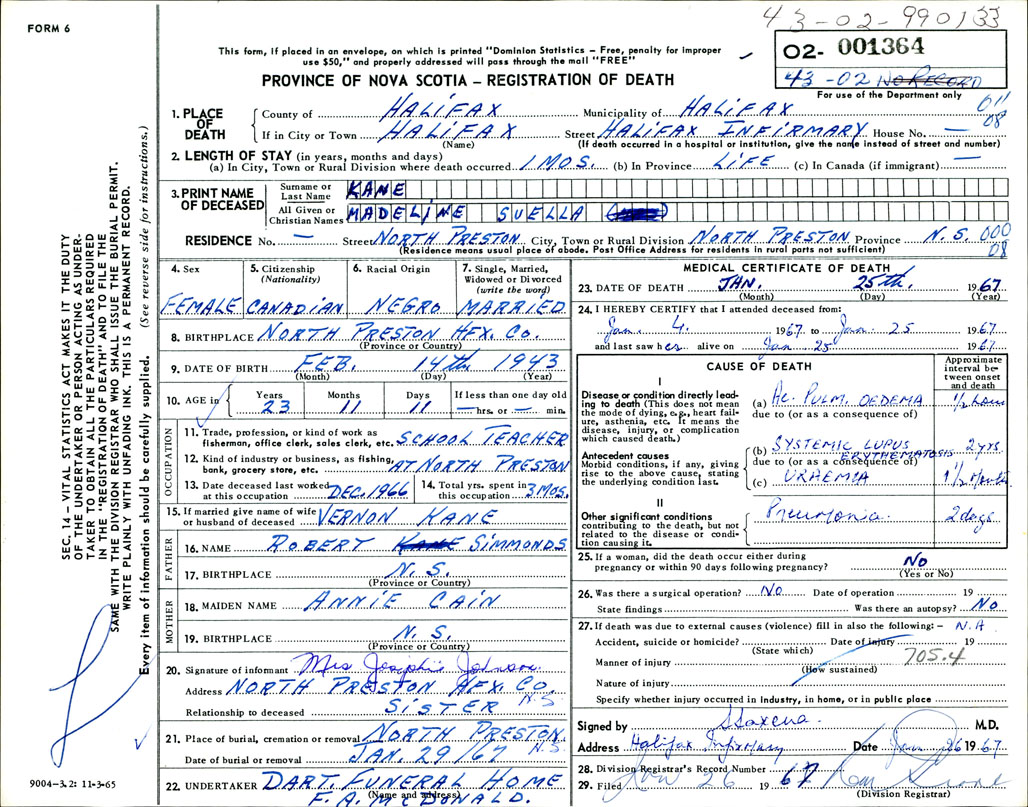 43-02-990133
FORM 6
This form, if placed in an envelope, on which is printed "Dominion Statistics – Free, penalty for improper
use $50," and properly addressed will pass through the mail "FREE"
02- 001364
43-02 NO RECORD
For use of the Department only
PROVINCE OF NOVA SCOTIA – REGISTRATION OF DEATH
011
08
1. PLACE OF DEATH
County of HALIFAX Municipality of HALIFAX
If in City or Town HALIFAX Street HALIFAX INFIRMARY House No. —
(Name) (If death occurred in a hospital or institution, give the name instead of street and number)
2. LENGTH OF STAY (in years, months and days)
(a) In City, Town or Rural Division where death occurred 1 MOS. (b) In Province LIFE (c) In Canada (if immigrant) —
3. PRINT NAME OF DECEASED
Surname or Last Name KANE
All Given or Christian Names MADELINE SUELLA
RESIDENCE No. — Street NORTH PRESTON City, Town or Rural Division NORTH PRESTON Province N.S. 000
08
(Residence means usual place of abode. Post Office Address for residents in rural parts not sufficient)
4. Sex
FEMALE
5. Citizenship
(Nationality)
CANADIAN
6. Racial Origin
NEGRO
7. Single, Married,
Widowed or Divorced
(write the word)
MARRIED
8. BIRTHPLACE NORTH PRESTON HFX. CO.
(Province or Country)
9. DATE OF BIRTH FEB. 14th 1943
(Month) (Day) (Year)
10. AGE in
Years Months Days If less than one day old
23 11 11 — hrs. or — min.
OCCUPATION
11. Trade, profession, or kind of work as
fisherman, office clerk, sales clerk, etc. SCHOOL TEACHER
12. Kind of industry or business, as fishing,
bank, grocery store, etc. AT NORTH PRESTON
13. Date deceased last worked
at this occupation DEC. 1966
14. Total yrs. spent in
this occupation 3 MOS.
15. If married give name of wife
or husband of deceased VERNON KANE
FATHER
16. NAME ROBERT KANE SIMMONDS
17. BIRTHPLACE N.S.
(Province or Country)
MOTHER
18. MAIDEN NAME ANNIE CAIN
19. BIRTHPLACE N.S.
(Province or Country)
20. Signature of informant Mrs Josephie Johnson
Address NORTH PRESTON HFX. CO.
N.S
Relationship to deceased SISTER
21. Place of burial, cremation or removal NORTH PRESTON
N.S.
Date of burial or removal JAN. 29/67
22. UNDERTAKER DART. FUNERAL HOME
(Name and address)
F. A. MCDONALD.
MEDICAL CERTIFICATE OF DEATH
23. DATE OF DEATH JAN. 25th. 1967
(Month) (Day) (Year)
24. I HEREBY CERTIFY that I attended deceased from:
Jan. 4. 1967 to Jan. 25 1967
and last saw her alive on Jan 25 1967
CAUSE OF DEATH
Approximate
interval be-
tween onset
and death
I
Disease or condition directly lead-
ing to death (This does not mean
the mode of dying, e.g., heart fail-
ure, asthenia, etc. It means the
disease, injury, or complication
which caused death.)
(a) Ac. PULM. OEDEMA 1/2 hour
due to (or as a consequence of)
Antecedent causes
Morbid conditions, if any, giving
rise to the above cause, stating
the underlying condition last.
(b) SYSTEMIC LUPUS ERYTHEMATOSIS 2 yrs
due to (or as a consequence of)
(c) URAEMIA 1 1/2 Months
II
Other significant conditions
contributing to the death, but not
related to the disease or condi-
tion causing it.
Pneumonia. 2 days
25. If a woman, did the death occur either during
pregnancy or within 90 days following pregnancy? No
(Yes or No)
26. Was there a surgical operation? No Date of operation 19
State findings Was there an autopsy? No
27. If death was due to external causes (violence) fill in also the following:– N.A
Accident, suicide or homicide? Date of injury 19
(State which)
Manner of injury 705.4
(How sustained)
Nature of injury
Specify whether injury occurred in industry, in home, or in public place
Signed by SSaxena. M.D.
Address Halifax Infirmary Date Jan 26 1967
28. Division Registrar's Record Number
29. Filed Jan 26 1967
(Division Registrar)
SEC. 14 – VITAL STATISTICS ACT MAKES IT THE DUTY
OF THE UNDERTAKER OR PERSON ACTING AS UNDER-
TAKER TO OBTAIN ALL THE PARTICULARS REQUIRED
IN THE "REGISTRATION OF DEATH" AND TO FILE THE
SAME WITH THE DIVISION REGISTRAR WHO SHALL ISSUE THE BURIAL PERMIT.
WRITE PLAINLY WITH UNFADING INK. THIS IS A PERMANENT RECORD.
Every item of information should be carefully supplied. (See reverse side for instructions.)
9004–3.2: 11-3-65